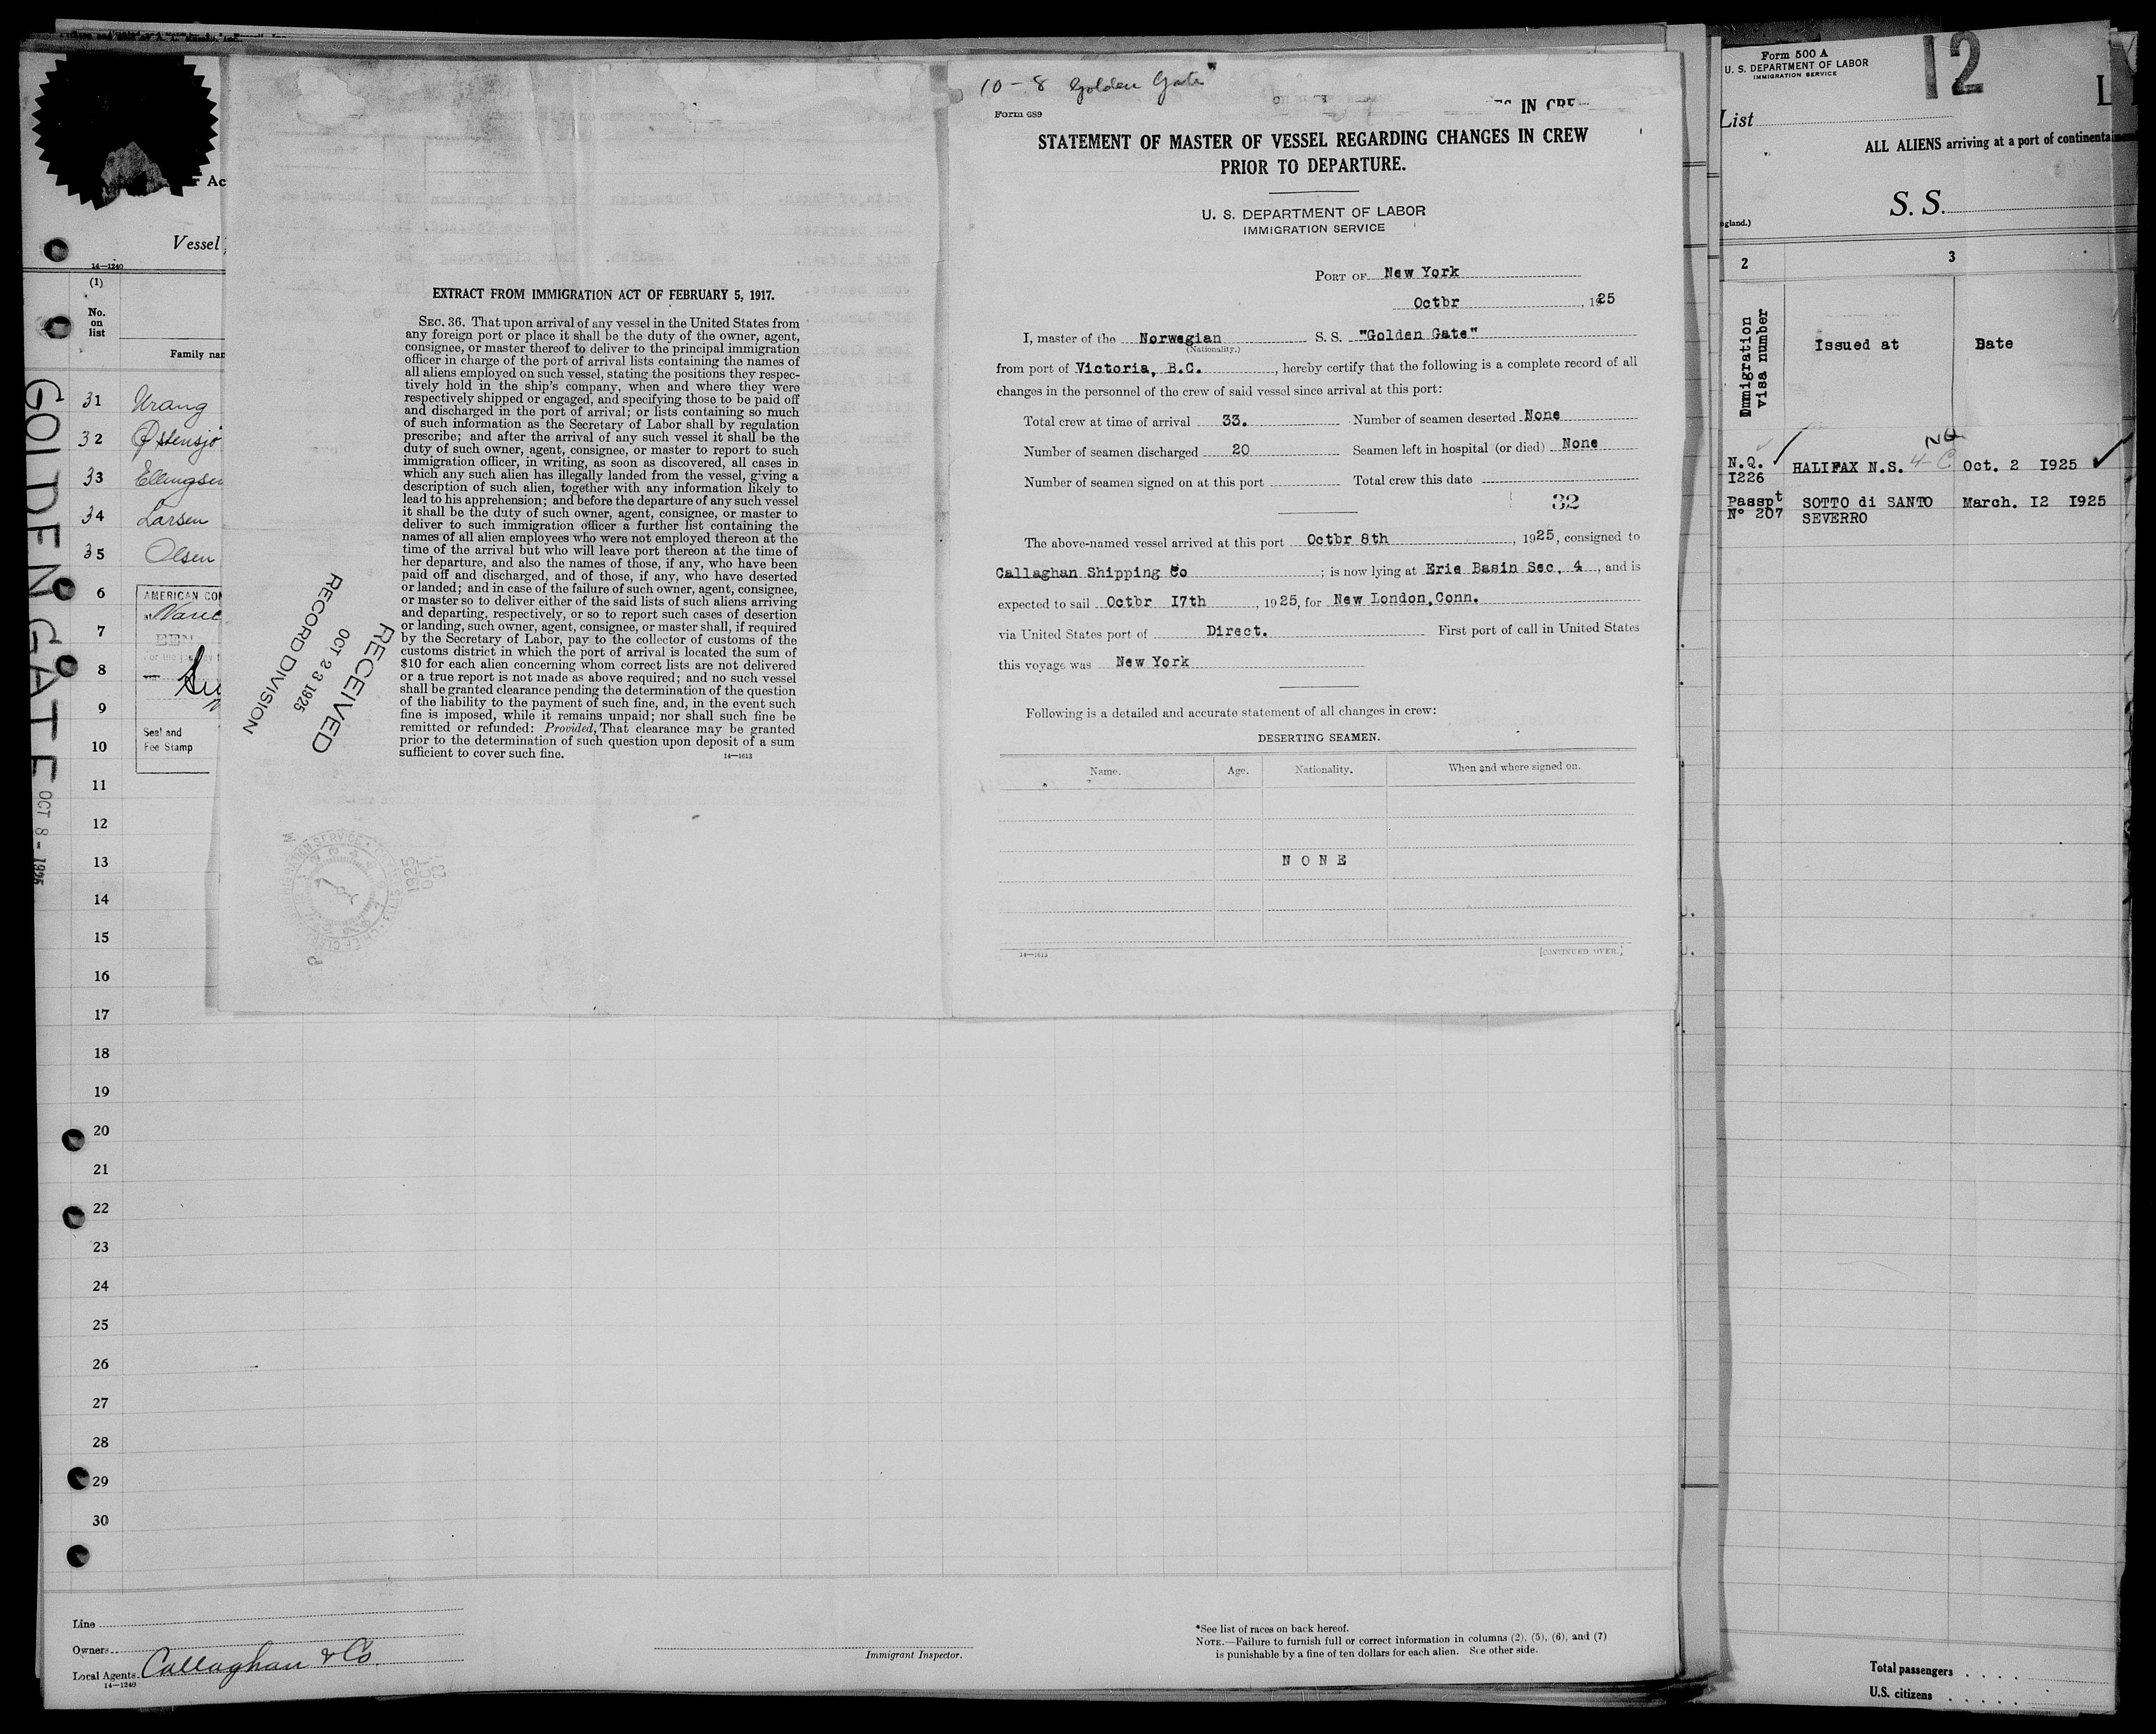 Form 689
10 - 8 Golden Gate
STATEMENT OF MASTER OF VESSEL REGARDING CHANGES IN CREW
PRIOR TO DEPARTURE.
U. S. DEPARTMENT OF LABOR
IMMIGRATION SERVICE
PORT OF New York
Octbr , 1925
I, master of the Norwegian S. S. "Golden Gate"
(Nationality.)
from port of Victoria, B.C. , hereby certify that the following is a complete record of all
changes in the personnel of the crew of said vessel since arrival at this port:
Total crew at time of arrival 33. Number of seamen deserted None
Number of seamen discharged 20 Seamen left in hospital (or died) None
Number of seamen signed on at this port Total crew this date
32
The above-named vessel arrived at this port Octbr 8th , 1925, consigned to
Callaghan Shipping Co ; is now lying at Erie Basin Sec, 4 , and is
expected to sail Octbr I7th , 1925, for New London, Conn.
via United States port of Direct. First port of call in United States
this voyage was New York
Following is a detailed and accurate statement of all changes in crew:
DESERTING SEAMEN.
Name. Age. Nationality. When and where signed on.
N O N E
14—1613 [CONTINUED OVER.]
EXTRACT FROM IMMIGRATION ACT OF FEBRUARY 5, 1917.
SEC. 36. That upon arrival of any vessel in the United States from
any foreign port or place it shall be the duty of the owner, agent,
consignee, or master thereof to deliver to the principal immigration
officer in charge of the port of arrival lists containing the names of
all aliens employed on such vessel, stating the positions they respec-
tively hold in the ship's company, when and where they were
respectively shipped or engaged, and specifying those to be paid off
and discharged in the port of arrival; or lists containing so much
of such information as the Secretary of Labor shall by regulation
prescribe; and after the arrival of any such vessel it shall be the
duty of such owner, agent, consignee, or master to report to such
immigration officer, in writing, as soon as discovered, all cases in
which any such alien has illegally landed from the vessel, giving a
description of such alien, together with any information likely to
lead to his apprehension; and before the departure of any such vessel
it shall be the duty of such owner, agent, consignee, or master to
deliver to such immigration officer a further list containing the
names of all alien employees who were not employed thereon at the
time of the arrival but who will leave port thereon at the time of
her departure, and also the names of those, if any, who have been
paid off and discharged, and of those, if any, who have deserted
or landed; and in case of the failure of such owner, agent, consignee,
or master so to deliver either of the said lists of such aliens arriving
and departing, respectively, or so to report such cases of desertion
or landing, such owner, agent, consignee, or master shall, if required
by the Secretary of Labor, pay to the collector of customs of the
customs district in which the port of arrival is located the sum of
$10 for each alien concerning whom correct lists are not delivered
or a true report is not made as above required; and no such vessel
shall be granted clearance pending the determination of the question
of the liability to the payment of such fine, and, in the event such
fine is imposed, while it remains unpaid; nor shall such fine be
remitted or refunded: Provided, That clearance may be granted
prior to the determination of such question upon deposit of a sum
sufficient to cover such fine.
14—1613
RECEIVED
OCT 23 1925
RECORD DIVISION
Vessel
14—1240
(1)
No.
on
list
Family nar
31 Urang
32 Østensjö
33 Ellingsen
34 Larsen
35 Olsen
6
7
8
9
10
11
12
13
14
15
16
17
18
19
20
21
22
23
24
25
26
27
28
29
30
AMERICAN CON
Seal and
Fee Stamp
GOLDEN GATE
OCT 8 - 1925
Line
Owners
Local Agents Callaghan & Co.
14—1240
Immigrant Inspector.
*See list of races on back hereof.
NOTE.—Failure to furnish full or correct information in columns (2), (5), (6), and (7)
is punishable by a fine of ten dollars for each alien. See other side.
Form 500 A
U. S. DEPARTMENT OF LABOR
IMMIGRATION SERVICE
12
List
ALL ALIENS arriving at a port of continenta
S. S.
ngland.)
2 3
Immigration
visa number
Issued at Date
N.Q.
I226 HALIFAX N.S. 4-C NQ Oct. 2 I925
Passpt
N° 207 SOTTO di SANTO
SEVERRO March. I2 I925
Total passengers
U.S. citizens